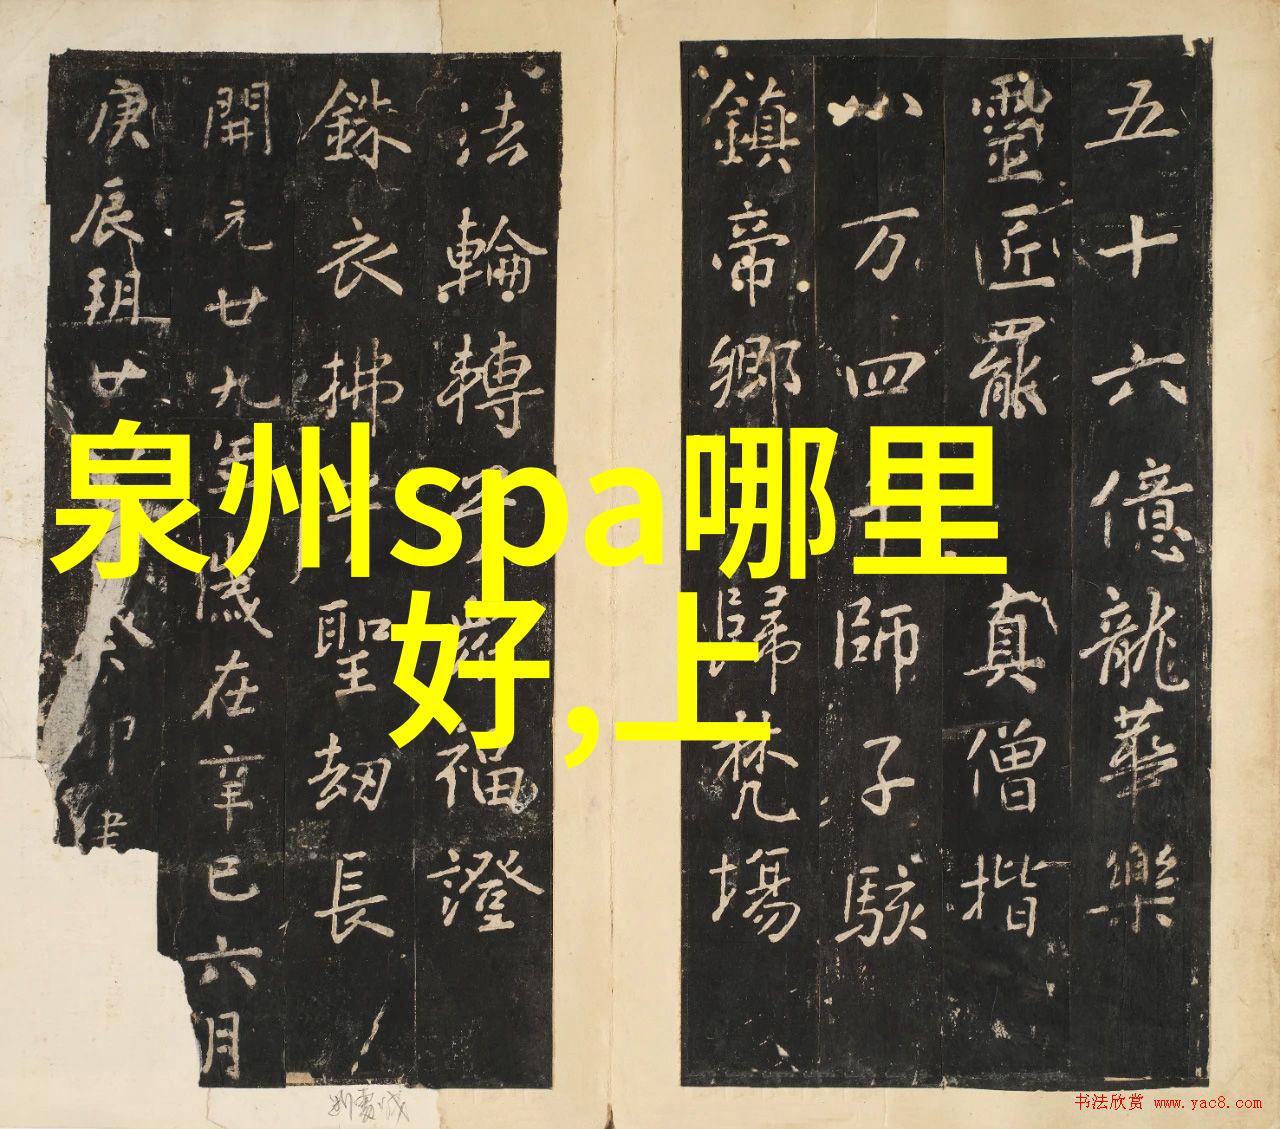 五十六億龍華樂
靈匠罷
真僧揩
八万四千師子駭
鎮帝鄉
歸梵場
法輪轉
福證
銖衣拂
聖劫長
開元廿九年歲在辛巳六月
庚辰玥廿
泉州spa哪里
好,上
书法欣赏 www.yac8.com